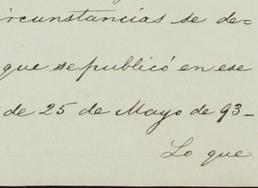 ircunstancias se de=
que se publicó en ese
de 25 de Mayo de 93_
Lo que